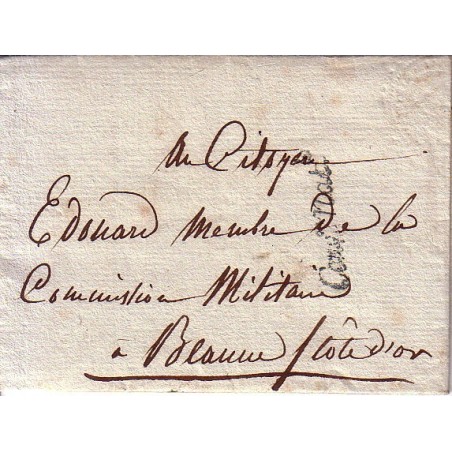 Au Citoyen
Edouard Membre de la
Commission Militaire
a Beaune Côte d'or